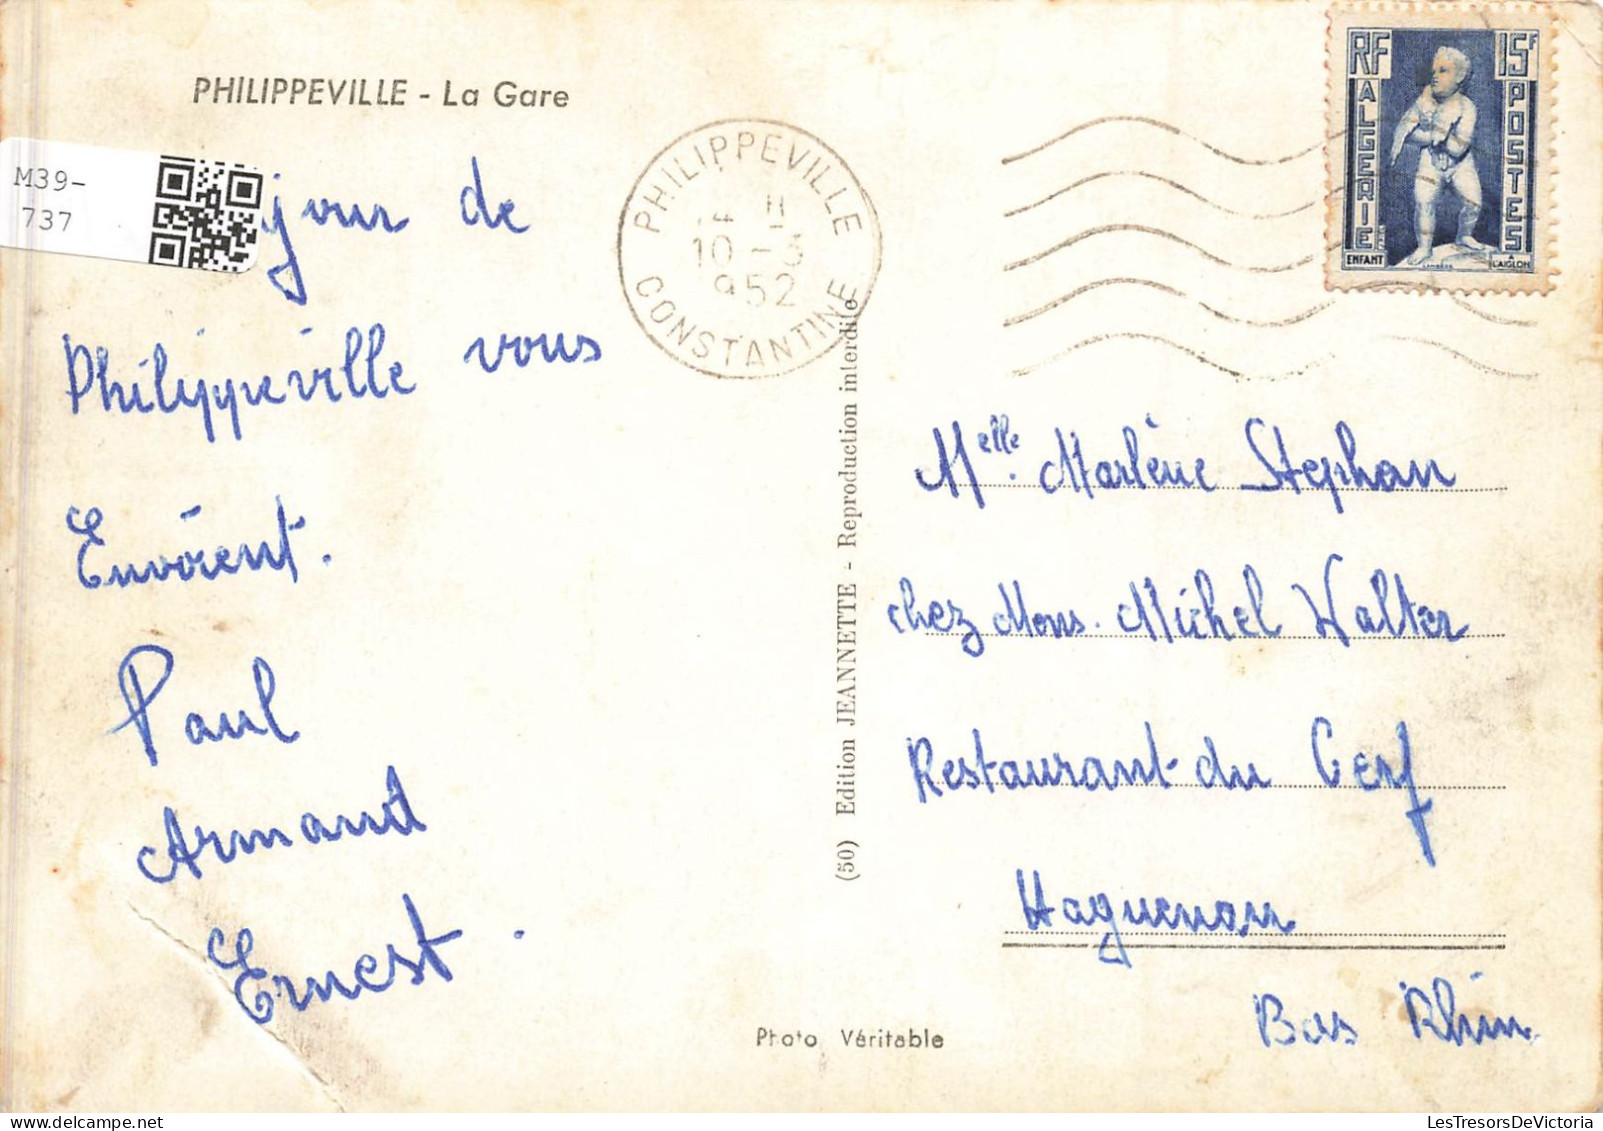 PHILIPPEVILLE - La Gare
M39-
737
jour de
Philippeville vous
Envoient.
Paul
Armand
Ernest.
PHILIPPEVILLE
10 - 3
1952
CONSTANTINE
(50) Edition JEANNETTE - Reproduction interdite
Photo Véritable
RF
15F
ALGERIE
POSTES
ENFANT
A
L'AIGLON
Melle. Marlène Stephan
chez Mons. Michel Walter
Restaurant du Cerf
Haguenau
Bas Rhin.
LesTresorsDeVictoria